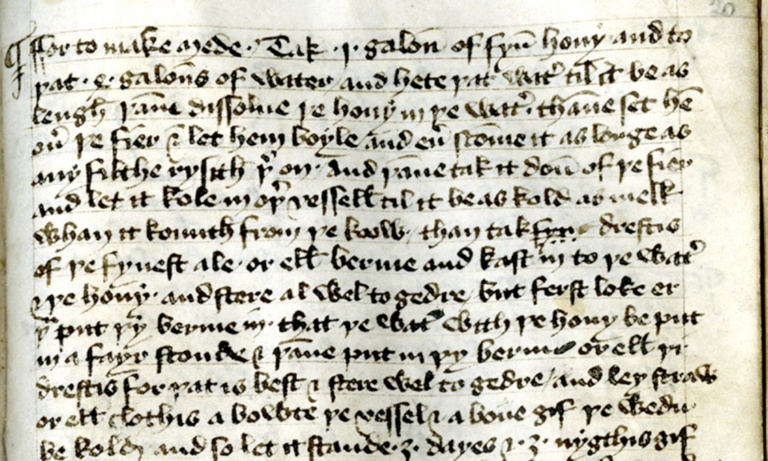 20
ffor to make mede. Tak .i. galoun of fyn hony and to
þat .4. galouns of water and hete þat wat' til it be as
lengh þanne dissolue þe hony in þe wat'. thanne set hem
ou' þe fier & let hem boyle and eu' scome it as longe as
any filthe rysith þ' on. and þanne tak it doun of þe fier
and let it kole in oþ' vessell til it be as kold as melk
whan it komith from þe koow. than tak drestis
of þe fynest ale. or ell berme and kast in to þe wat'
& þe hony. and stere al wel to gedre. but ferst loke er
þu put þy berme in. that þe wat' with þe hony be put
in a fayr stonde & þanne put in þy berme or ell þi
drestis for þat is best & stere wel to gedre/ and ley straw
or ell clothis a bowte þe vessel & a boue gif þe wedir
be kolde and so let it stande .3. dayes & .3. nygthis gif